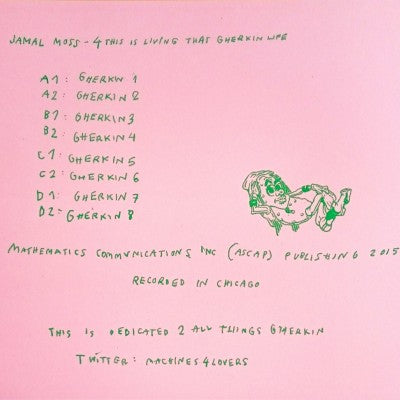 JAMAL MOSS - 4 THIS IS LIVING THAT GHERKIN LIFE
A1: GHERKIN 1
A2: GHERKIN 2
B1: GHERKIN 3
B2: GHERKIN 4
C1: GHERKIN 5
C2: GHERKIN 6
D1: GHERKIN 7
D2: GHERKIN 8
MATHEMATICS COMMUNICATIONS INC (ASCAP) PUBLISHING 2015
RECORDED IN CHICAGO
THIS IS DEDICATED 2 ALL THINGS GHERKIN
TWITTER: MACHINES4LOVERS